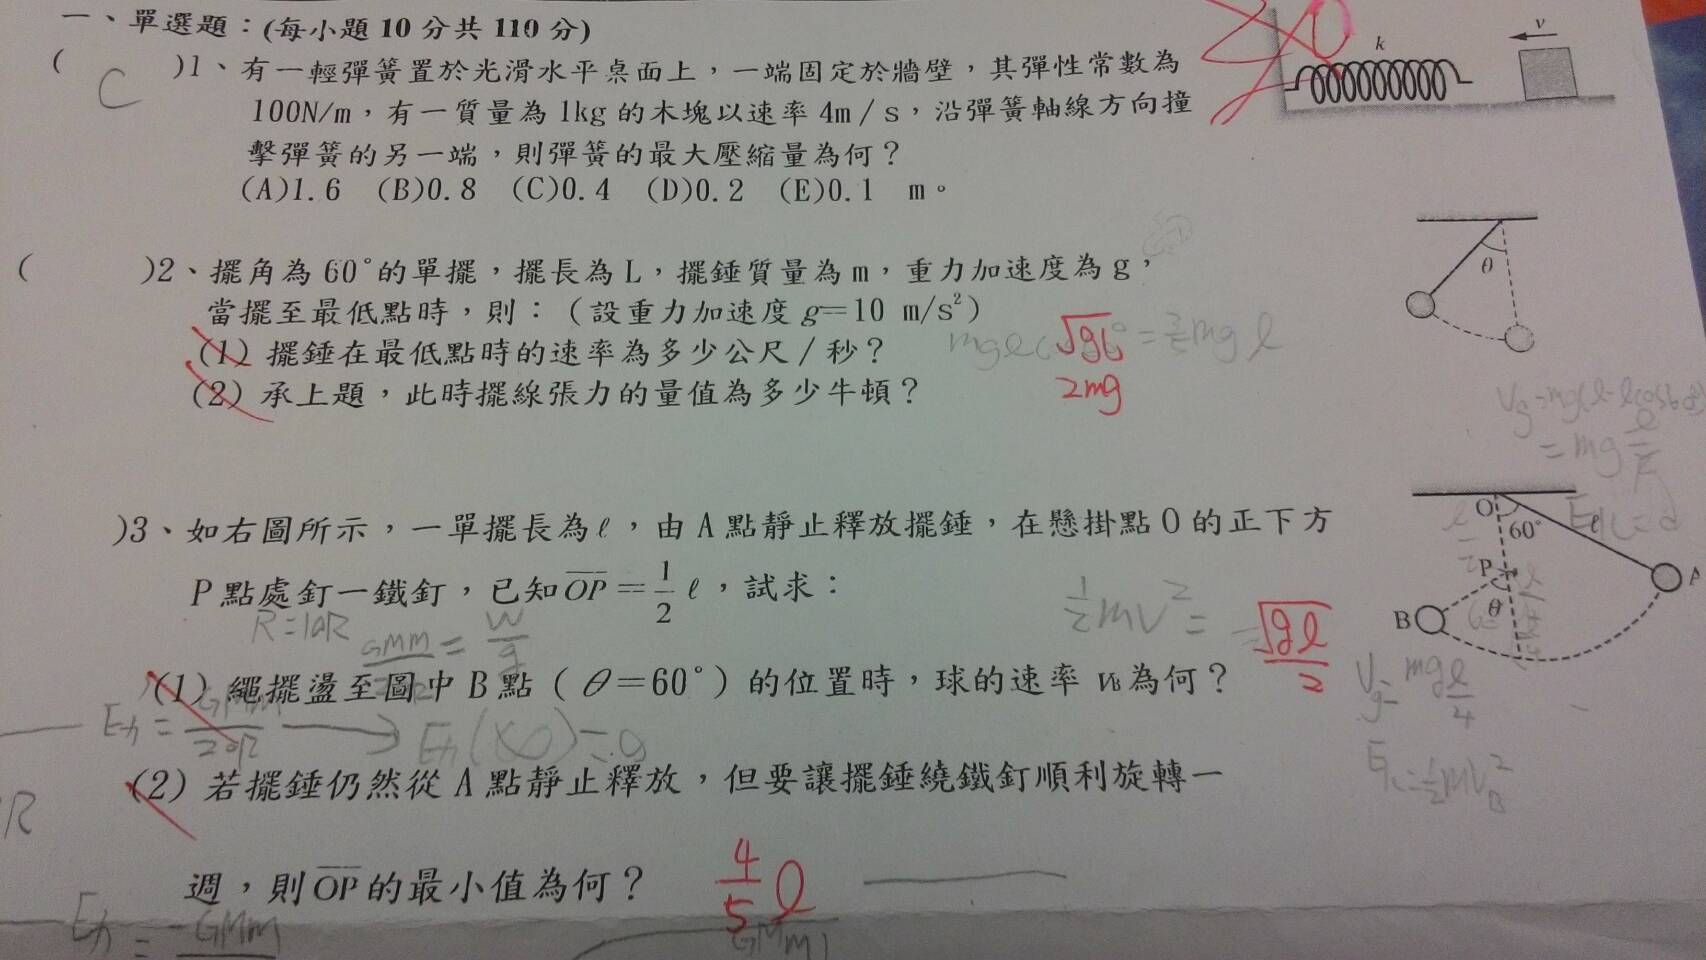 一、單選題：(每小題 10 分共 110 分)
( C )1、有一輕彈簧置於光滑水平桌面上，一端固定於牆壁，其彈性常數為
100N/m，有一質量為 1kg 的木塊以速率 4m／s，沿彈簧軸線方向撞
擊彈簧的另一端，則彈簧的最大壓縮量為何？
(A)1.6 (B)0.8 (C)0.4 (D)0.2 (E)0.1 m。
k
v
( )2、擺角為 60°的單擺，擺長為 L，擺錘質量為 m，重力加速度為 g，
當擺至最低點時，則：（設重力加速度 g=10 m/s²）
(1) 擺錘在最低點時的速率為多少公尺／秒？
√gL
(2) 承上題，此時擺線張力的量值為多少牛頓？
2mg
θ
)3、如右圖所示，一單擺長為ℓ，由 A 點靜止釋放擺錘，在懸掛點 O 的正下方
P 點處釘一鐵釘，已知 OP = 1/2 ℓ，試求：
R=10R
GMm = W/g
½mV² =
√gℓ/2
(1) 繩擺盪至圖中 B 點（θ＝60°）的位置時，球的速率 vB為何？
(2) 若擺錘仍然從 A 點靜止釋放，但要讓擺錘繞鐵釘順利旋轉一
週，則OP的最小值為何？
4/5 ℓ
O
60°
P
θ
A
B
mg ℓ/4
=½mVB²
GMm